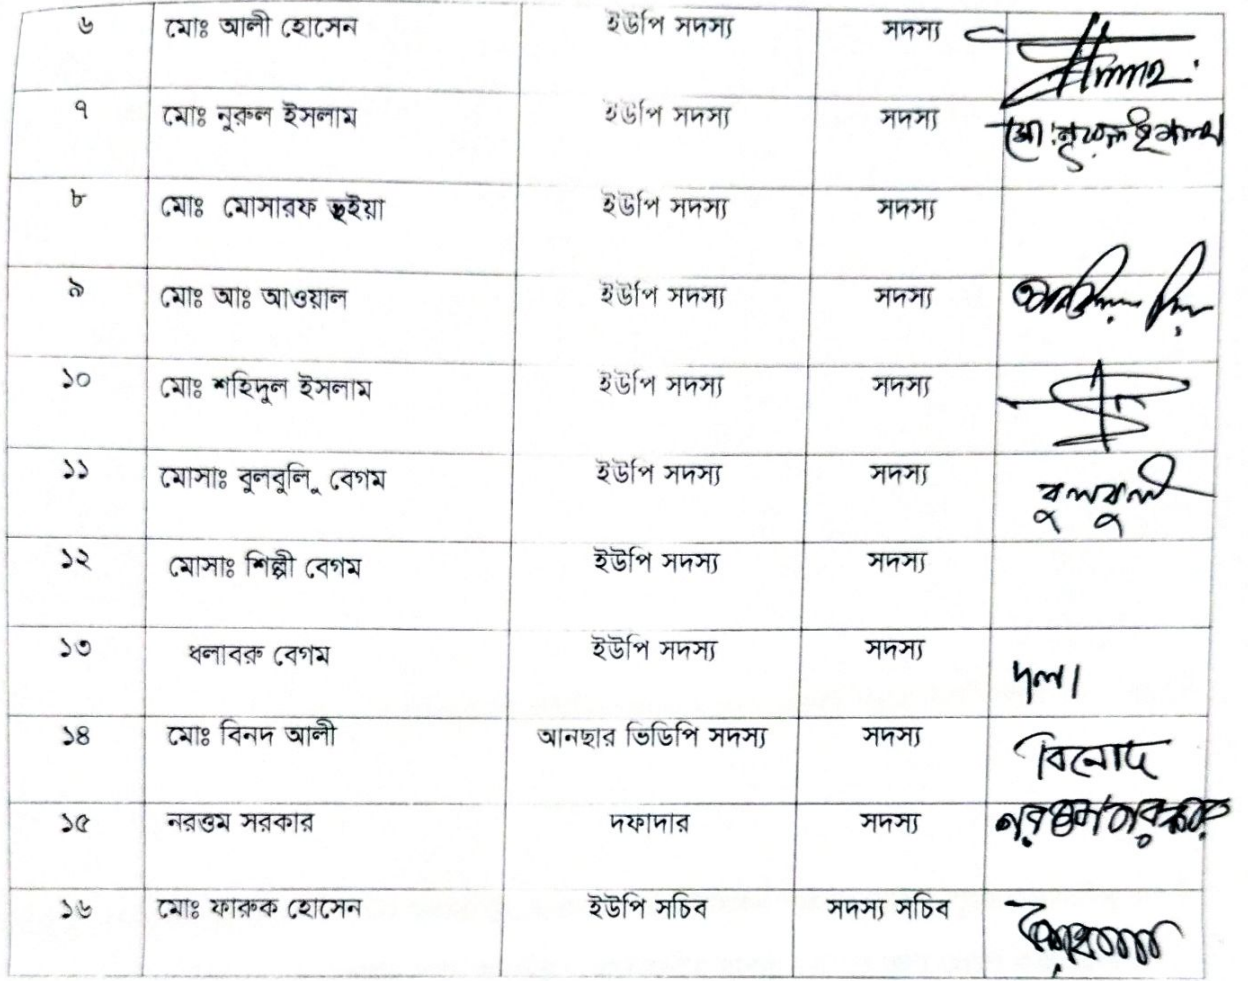 ৬ মোঃ আলী হোসেন ইউপি সদস্য সদস্য
৭ মোঃ নুরুল ইসলাম ইউপি সদস্য সদস্য মো: নুরুল ইসলাম
৮ মোঃ মোসারফ ভূইয়া ইউপি সদস্য সদস্য
৯ মোঃ আঃ আওয়াল ইউপি সদস্য সদস্য
১০ মোঃ শহিদুল ইসলাম ইউপি সদস্য সদস্য
১১ মোসাঃ বুলবুলি বেগম ইউপি সদস্য সদস্য বুলবুলী
১২ মোসাঃ শিল্পী বেগম ইউপি সদস্য সদস্য
১৩ ধলাবরু বেগম ইউপি সদস্য সদস্য
১৪ মোঃ বিনদ আলী আনছার ভিডিপি সদস্য সদস্য বিনোদ
১৫ নরত্তম সরকার দফাদার সদস্য
১৬ মোঃ ফারুক হোসেন ইউপি সচিব সদস্য সচিব